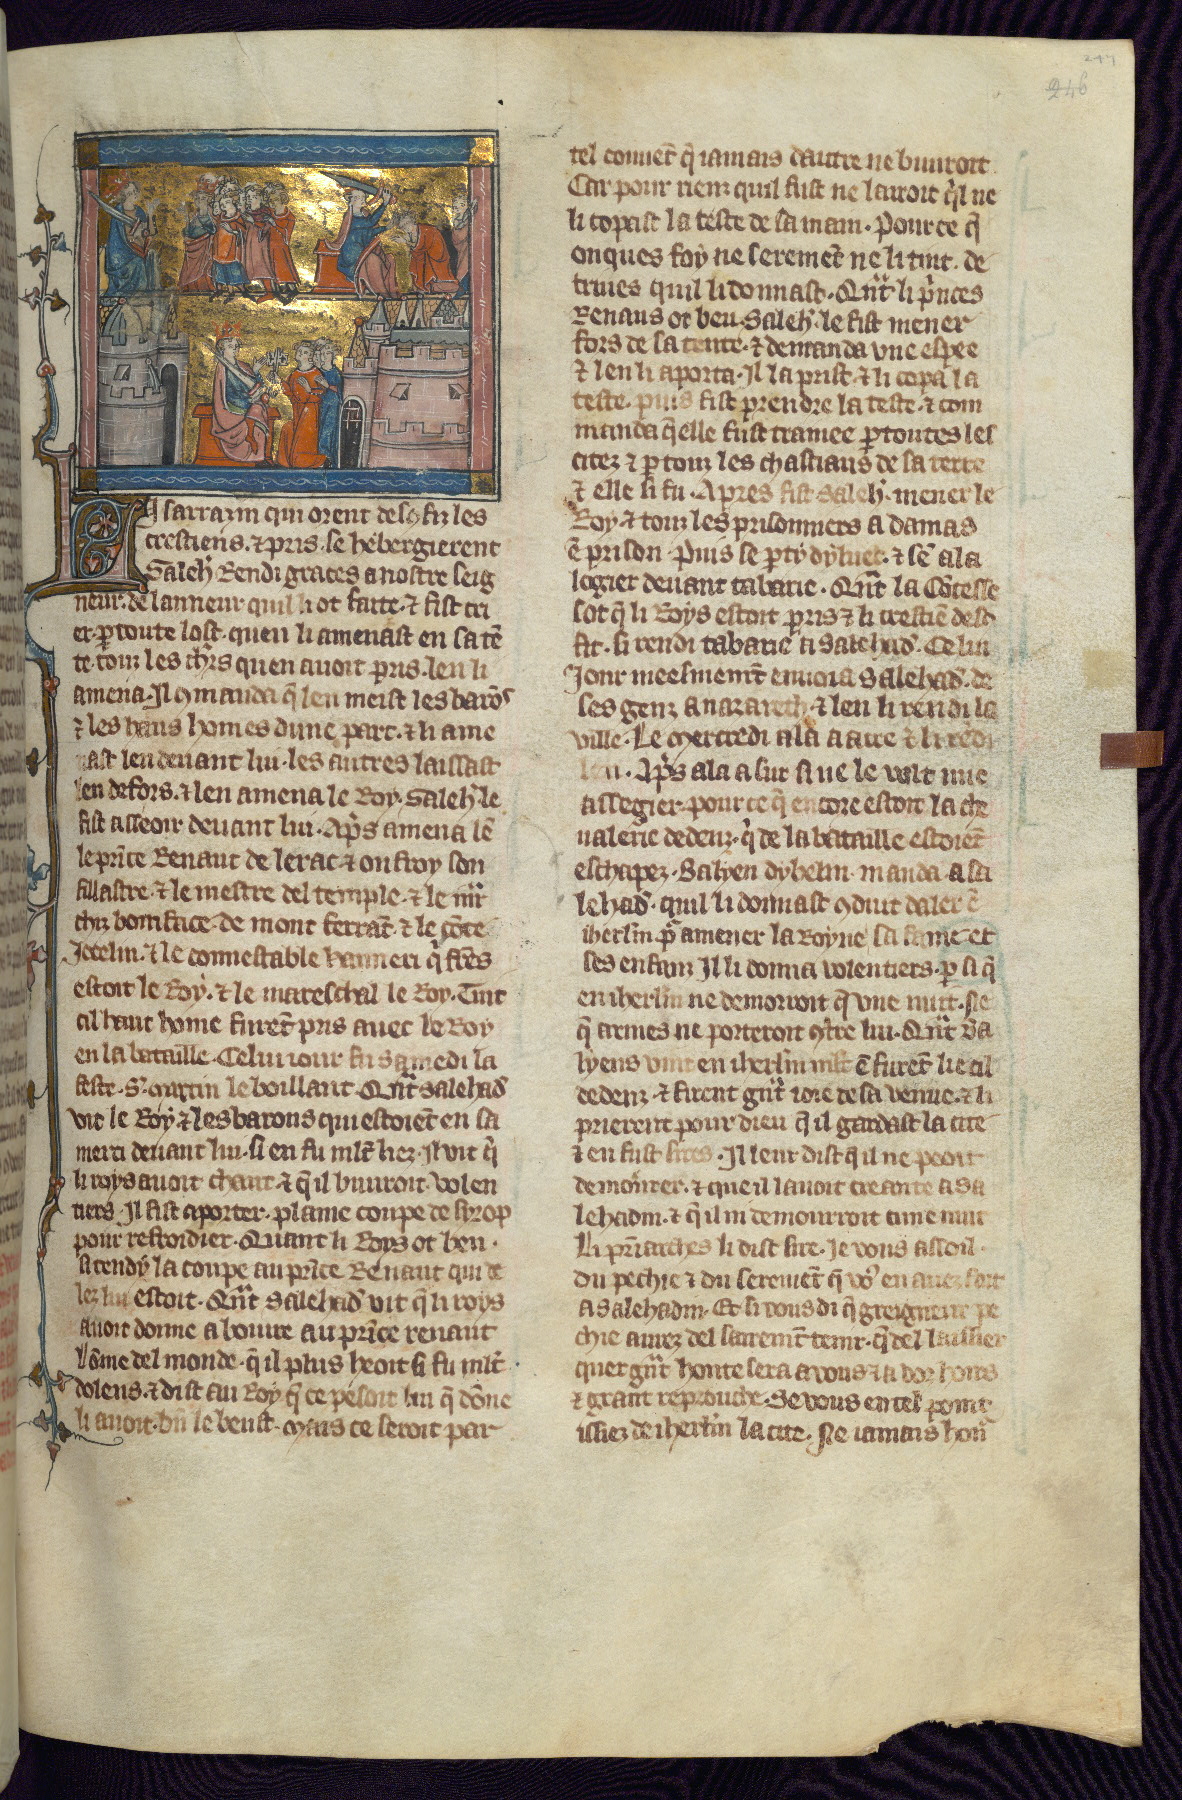 247
246
Li sarrazin qui orent desꝯfiz les
crestiens. ⁊ pris. se hebergierent
Saleh̃. Rendi graces a nostre seig
neur. de lanneur quil li ot faite. ⁊ fist cri
er. ꝑ toute lost. quen li amenast en sa tẽ
te. touz les chr̃s quen auoit pris. len li
amena. Il ꝯmanda q̃ len meist les barõs
⁊ les haus homes dune part. ⁊ li ame
nast len deuant lui. les autres laissast
len defors. ⁊ len amena le Roy. Saleh̃. le
fist asseoir deuant lui. Ap̃s amena lẽ
le prĩce Renaut de lerac ⁊ onfroy son
fillastre. ⁊ le mestre del temple. ⁊ le mr̃
chiz boniface de mont ferrãt. ⁊ le cõte
Jocelin. ⁊ le connestable haimeri q̃ fr̃es
estoit le Roy. ⁊ le mareschal le Roy. Tuit
cil haut home furẽt pris auec le Roy
en la bataille. Celui iour fu samedi la
feste. S. martin le boillant. Qñt salehad̃
vit le Roy ⁊ les barons qui estoiẽt en sa
merci deuant lui. si en fu ml̃t liez. Il vit q̃
li roys auoit chaut ⁊ q̃ il buuroit volen
tiers. Il fist aporter. plaine coupe de syrop
pour refroidier. Quant li Roys ot beu.
si tendy la coupe au prĩce Renaut qui de
lez lui estoit. Qñt salehad̃ vit q̃ li roys
auoit donne a boiure au prĩce renaut
lõme del monde. q̃ il plus heoit si fu ml̃t
dolens. ⁊ dist au Roy q̃ ce pesoit lui q̃ dõne
li auoit. bñ le beust. mais ce seroit par
tel conuẽt q̃ iamais dautre ne buuroit
Car pour riens quil fust ne lairoit q̃l ne
li copast la teste de sa main. Pour ce q̃
onques foy ne seremẽt ne li tint. de
triues quil li donnast. Qñt li prĩces
Renaus ot beu. Saleh̃. le fist mener
fors de sa tente. ⁊ demanda vne espee
⁊ len li aporta. Il la prist. ⁊ li copa la
teste. puis fist prendre la teste. ⁊ com
manda q̃ elle fust trainee ꝑ toutes les
citez ⁊ ꝑ touz les chastiaus de sa terre
⁊ elle si fu. Apres fist saleh̃. mener le
Roy ⁊ touz les prisonniers a damas
ẽ prison. Puis se ꝑty dyluec. ⁊ sẽ ala
logier deuant tabarie. Qñt la Cõtesse
sot q̃ li Roys estoit pris ⁊ li crestiẽ descõ
fit. si rendi tabarie a Salehad̃. Celui
Jour meesmemt̃ enuoia Salehad̃. de
ses genz a nazareth. ⁊ len li rendi la
ville. Le mercredi ala a acre ⁊ li rẽdi
len. Ap̃s ala a sur si ne le volt mie
assegier. pour ce q̃ encore estoit la che
ualerie dedenz. q̃ de la bataille estoiẽt
eschapez. Balyen dybelin. manda a sa
lehad̃. quil li donnast ꝯduit daler ẽ
iherlm̃ pr̃ amener la Royne sa feme et
ses enfanz Il li donna volentiers. ꝑ si q̃
en iherlm̃ ne demorroit q̃ vne nuit. Ne
q̃ armes ne porteroit ꝯtre lui. Qñt Ba
lyens vint en iherlm̃ ml̃t ẽ furẽt lie cil
dedenz. ⁊ firent gñt ioie de sa venue. ⁊ li
prierent pour dieu q̃ il gardast la cite
⁊ en fust sires. Il leur dist q̃ il ne pooit
demõrer. ⁊ que il lauoit creante a Sa
lehadin. ⁊ q̃ il ni demourroit cune nuit
Li pr̃iarches li dist sire. Je vous assoil
du pechie ⁊ du seremẽt q̃ vo᷒ en auez fait
a Salehadin. Et si vous di q̃ greigneur pe
chie aurez del sairemt̃ tenir. q̃ del laissier
quer gñt honte sera a vous ⁊ a voz hoirs
⁊ grant reprouche. Se vous en tel point
issiez de iherlm̃ la cite. Ne iamais hoñ